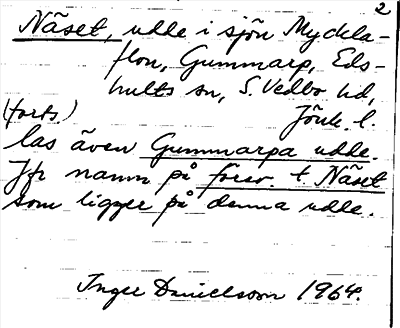 2
Näset, udde i sjön Myckla-
flon, Gummarp, Eds-
hults sn, S. Vedbo hd,
(forts.) Jönk. l.
las även Gummarpa udde.
Jfr namn på förev. t. Näset
som ligger på denna udde.
Inger Danielsson 1964.